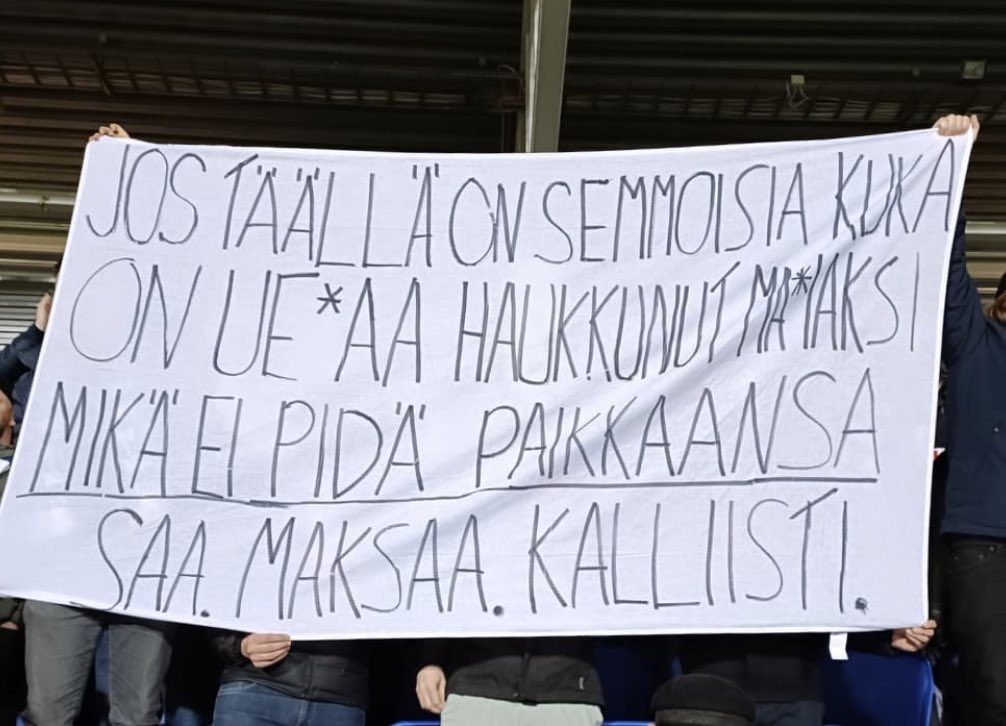 JOS TÄÄLLÄ ON SEMMOISIA KUKA
ON UE*AA HAUKKUNUT MA*IAKSI
MIKÄ EI PIDÄ PAIKKAANSA
SAA. MAKSAA. KALLIISTI.